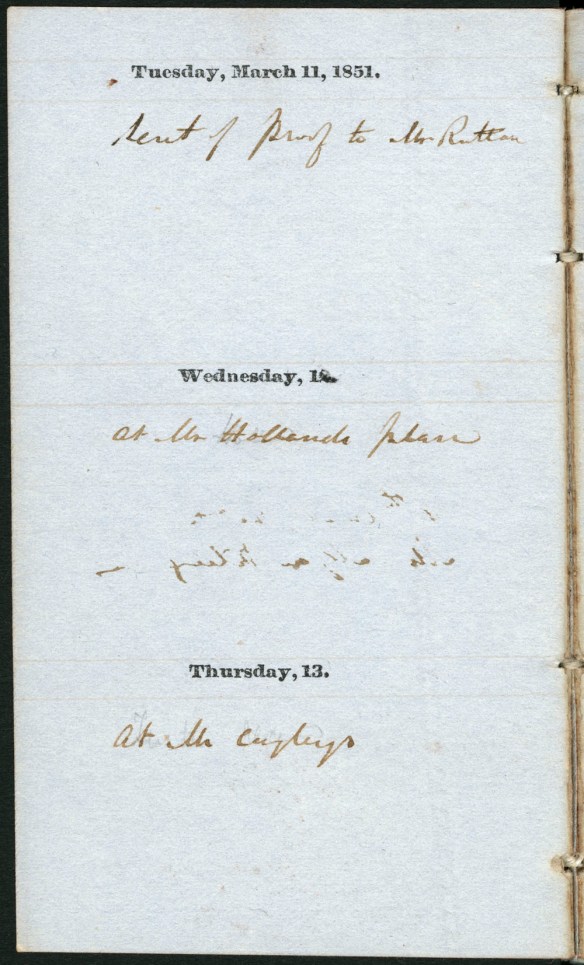 Tuesday, March 11, 1851.
Sent of Proof to Mr Ruttan
Wednesday, 12.
at Mr Hollands plan
Thursday, 13.
at Mr Cayleys